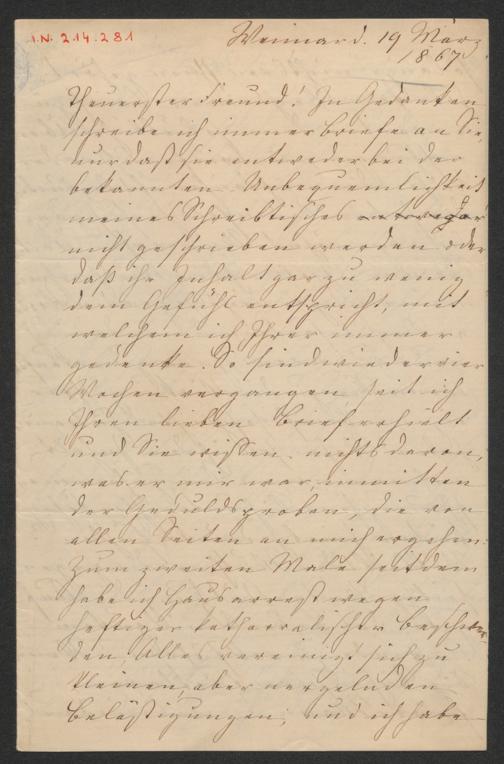 I.N. 214.281
Weimar d. 19 März
1867
Theuerster Freund! In Gedanken
schreibe ich immer Briefe an Sie,
nur daß sie entweder bei der
bekannten Unbequemlichkeit
meines Schreibtisches gar
nicht geschrieben werden oder
daß ihr Inhalt gar zu wenig
dem Gefühl entspricht, mit
welchem ich Ihrer immer
gedenke. So sind wieder vier
Wochen vergangen seit ich
Ihren lieben Brief erhielt
und Sie wissen nichts davon,
was er mir war, inmitten
der Geduldsproben, die von
allen Seiten an mich ergehen.
Zum zweiten Male seitdem
habe ich Hausarrest wegen
heftiger katharralischer Beschwer-
den, Alles vereinigt sich zu
kleinen, aber nergelnden
Belästigungen, und ich habe